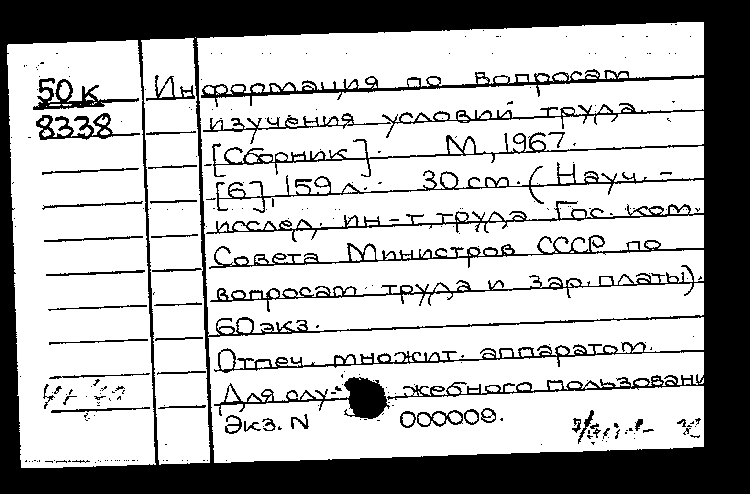 50к Информация по вопросам
8338 изучения условий труда.
[Сборник]. М., 1967.
[6], 159 л. 30 см. (Науч.-
исслед. ин-т труда Гос. ком.
Совета Министров СССР по
вопросам труда и зар. платы).
60 экз.
Отпеч. множит. аппаратом.
Для слу- жебного пользовани
Экз. N 000009.